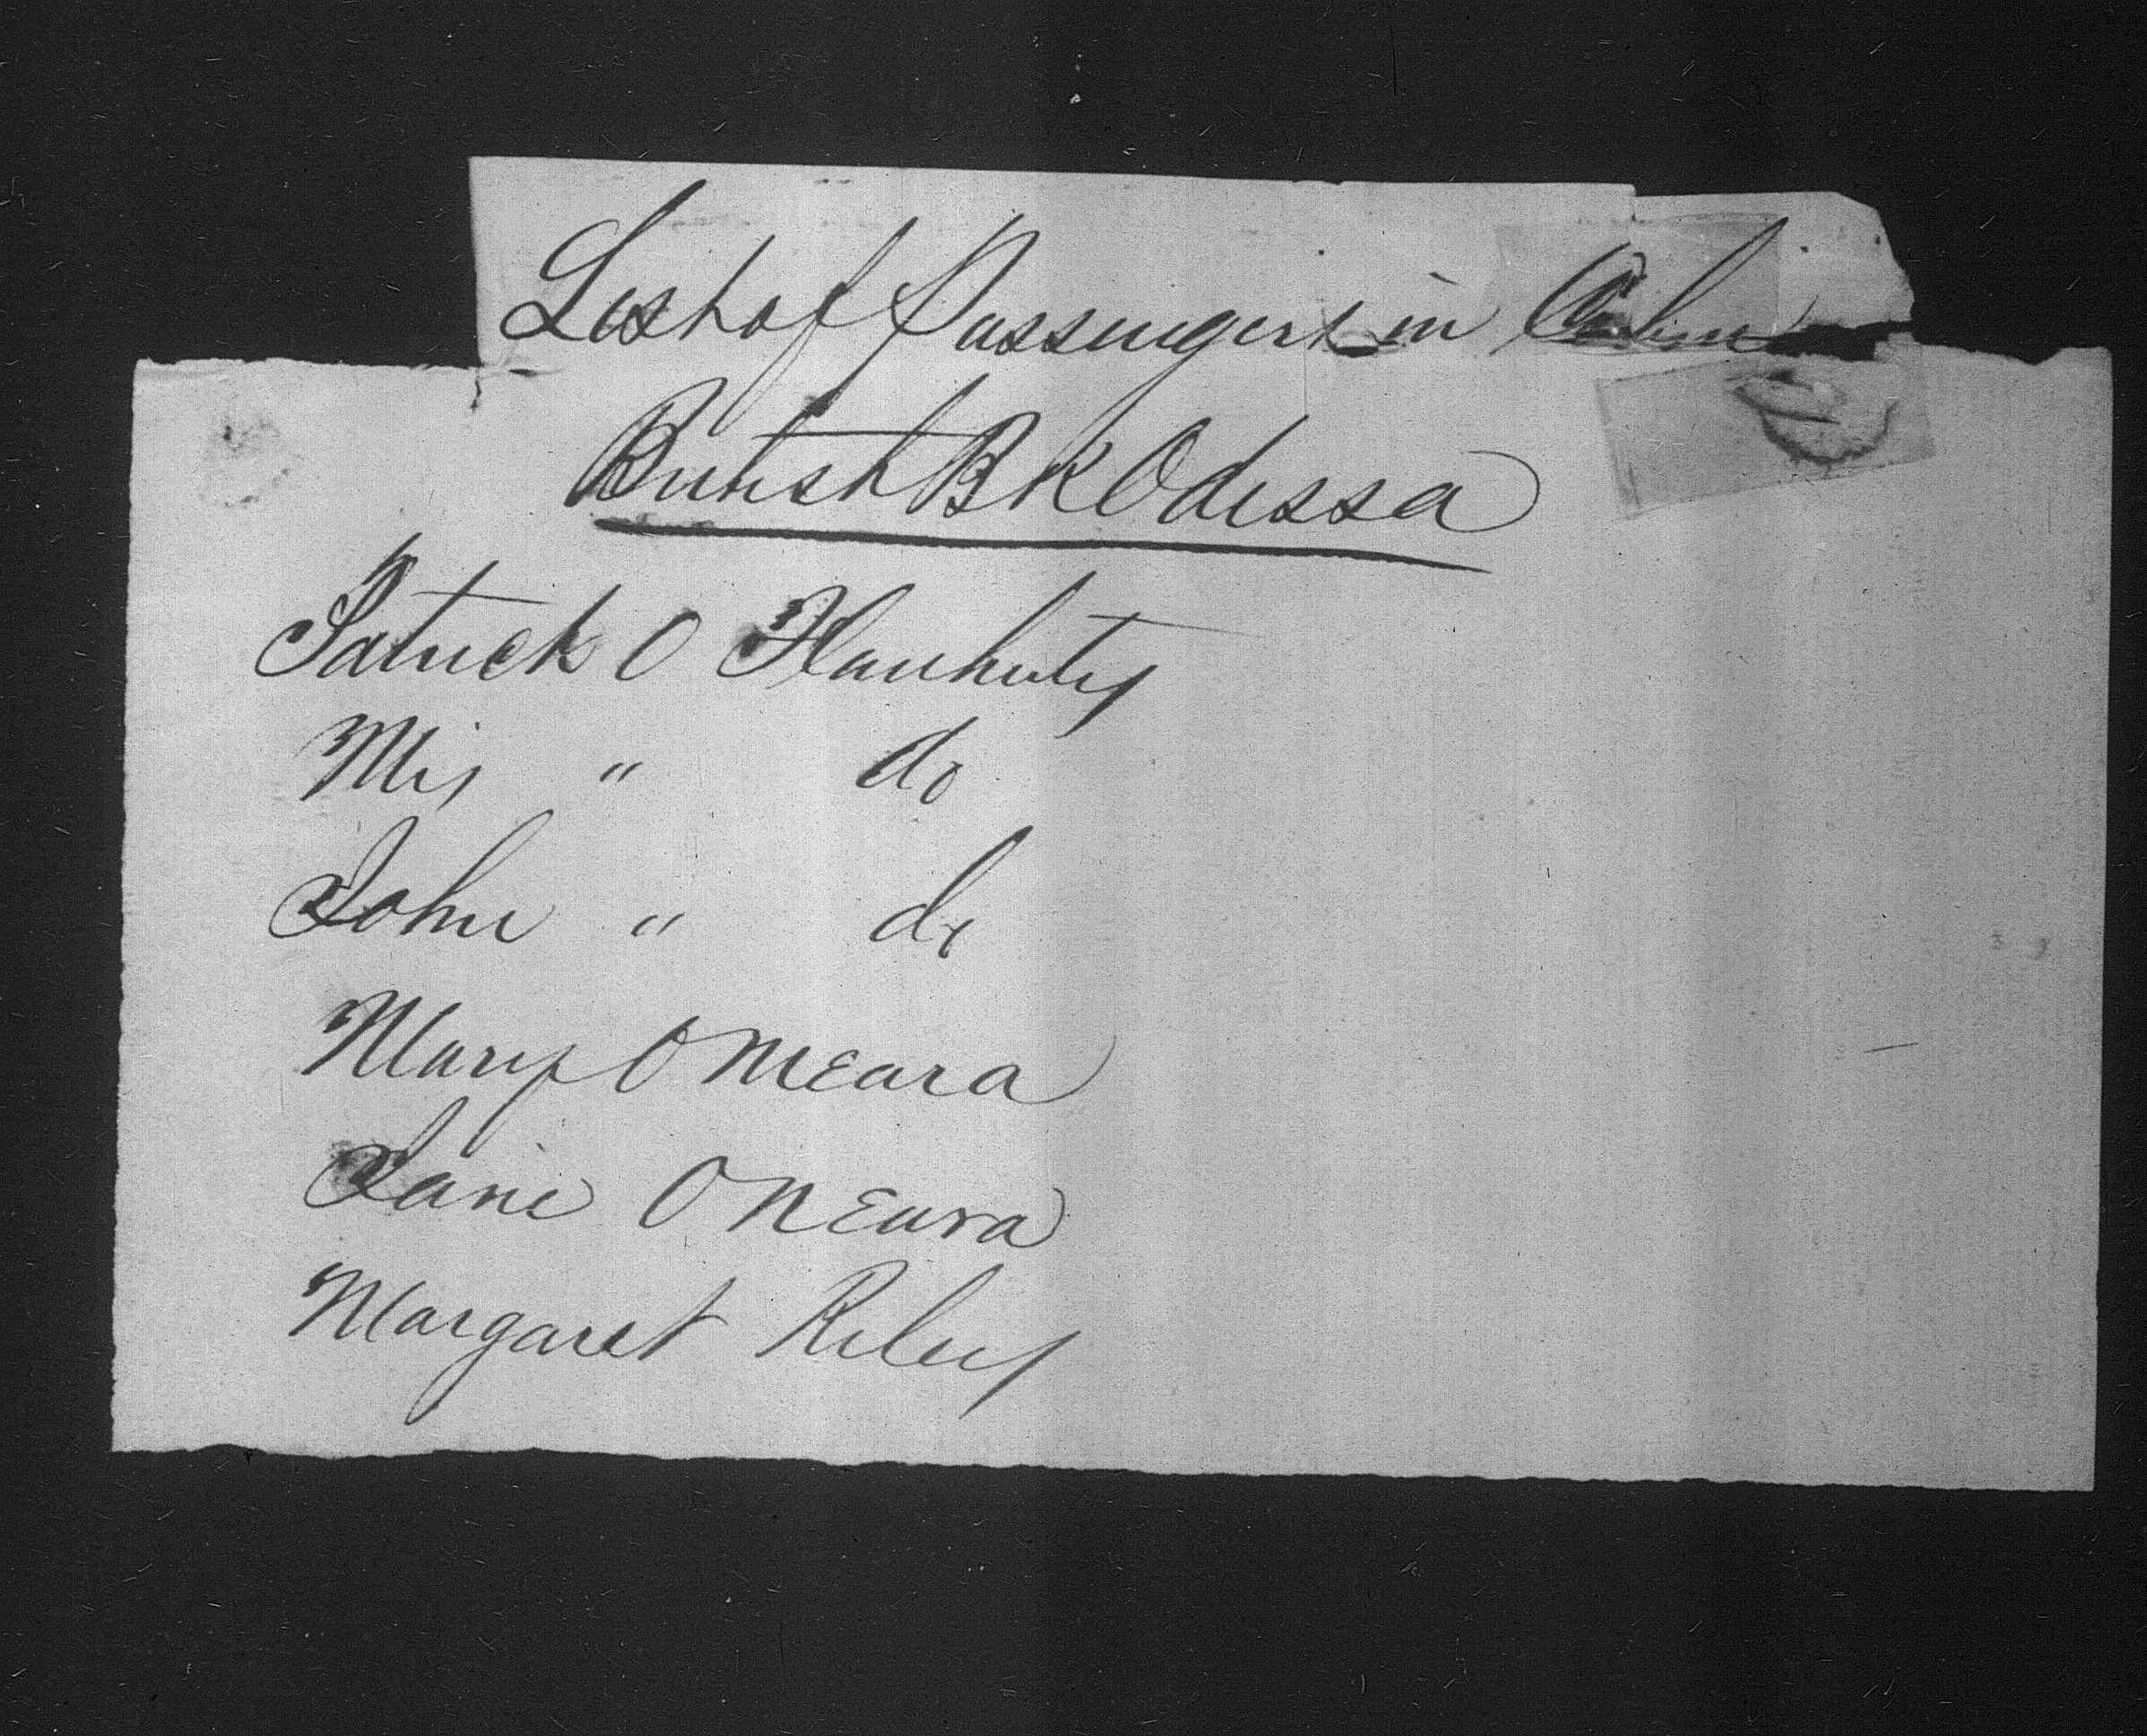 List of Passengers in Cabin
British BK Odessa
Patrick O Flauhuty
Mrs " do
John " do
Mary O Meara
Jane O NEara
Margaret Riley